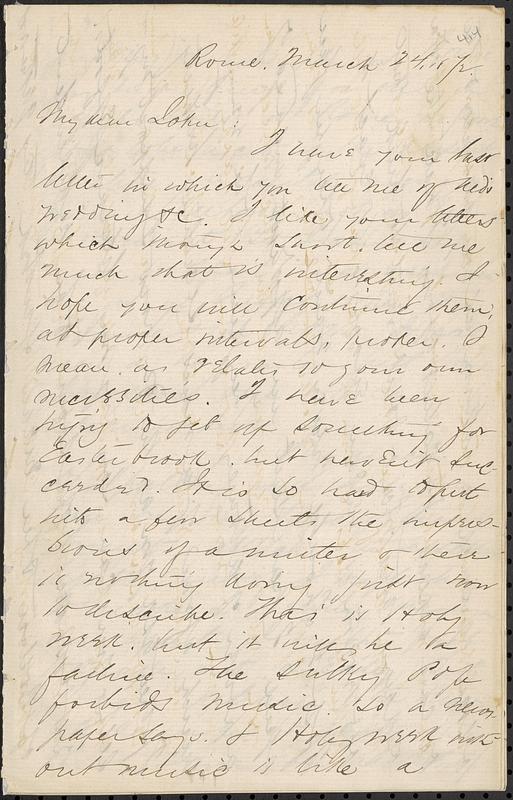 414
Rome. March 24. 187
My dear John:
I have your last
letter in which you tell me of
wedding &c. I like your letters
which though short, tell me
much that is interesting. I
hope you will continue them,
at proper intervals, proper. I
mean, as relates to your own
necessities. I have been
trying to get up something for
Easterbrook. but havent suc-
ceeded. It is so hard to put
into a few sheets the impres-
sions of a winter & there
is nothing doing just now
to describe. This is Holy
week. but it will be a
failure. The sulky Pope
forbids music. so a news-
paper says. & Holy week with-
out music is like a